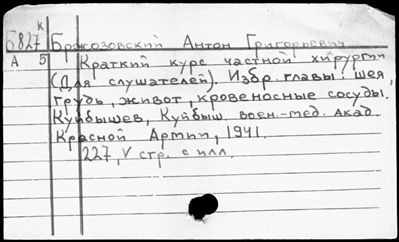 к
Б827 Бржозовский Антон Григорьевич
А 5 Краткий курс частной хирургии
(для слушателей). Избр. главы: шея,
грудь, живот, кровеносные сосуды.
Куйбышев, Куйбыш. воен.-мед. Акад.
Красной Армии, 1941.
227, V стр. с илл.